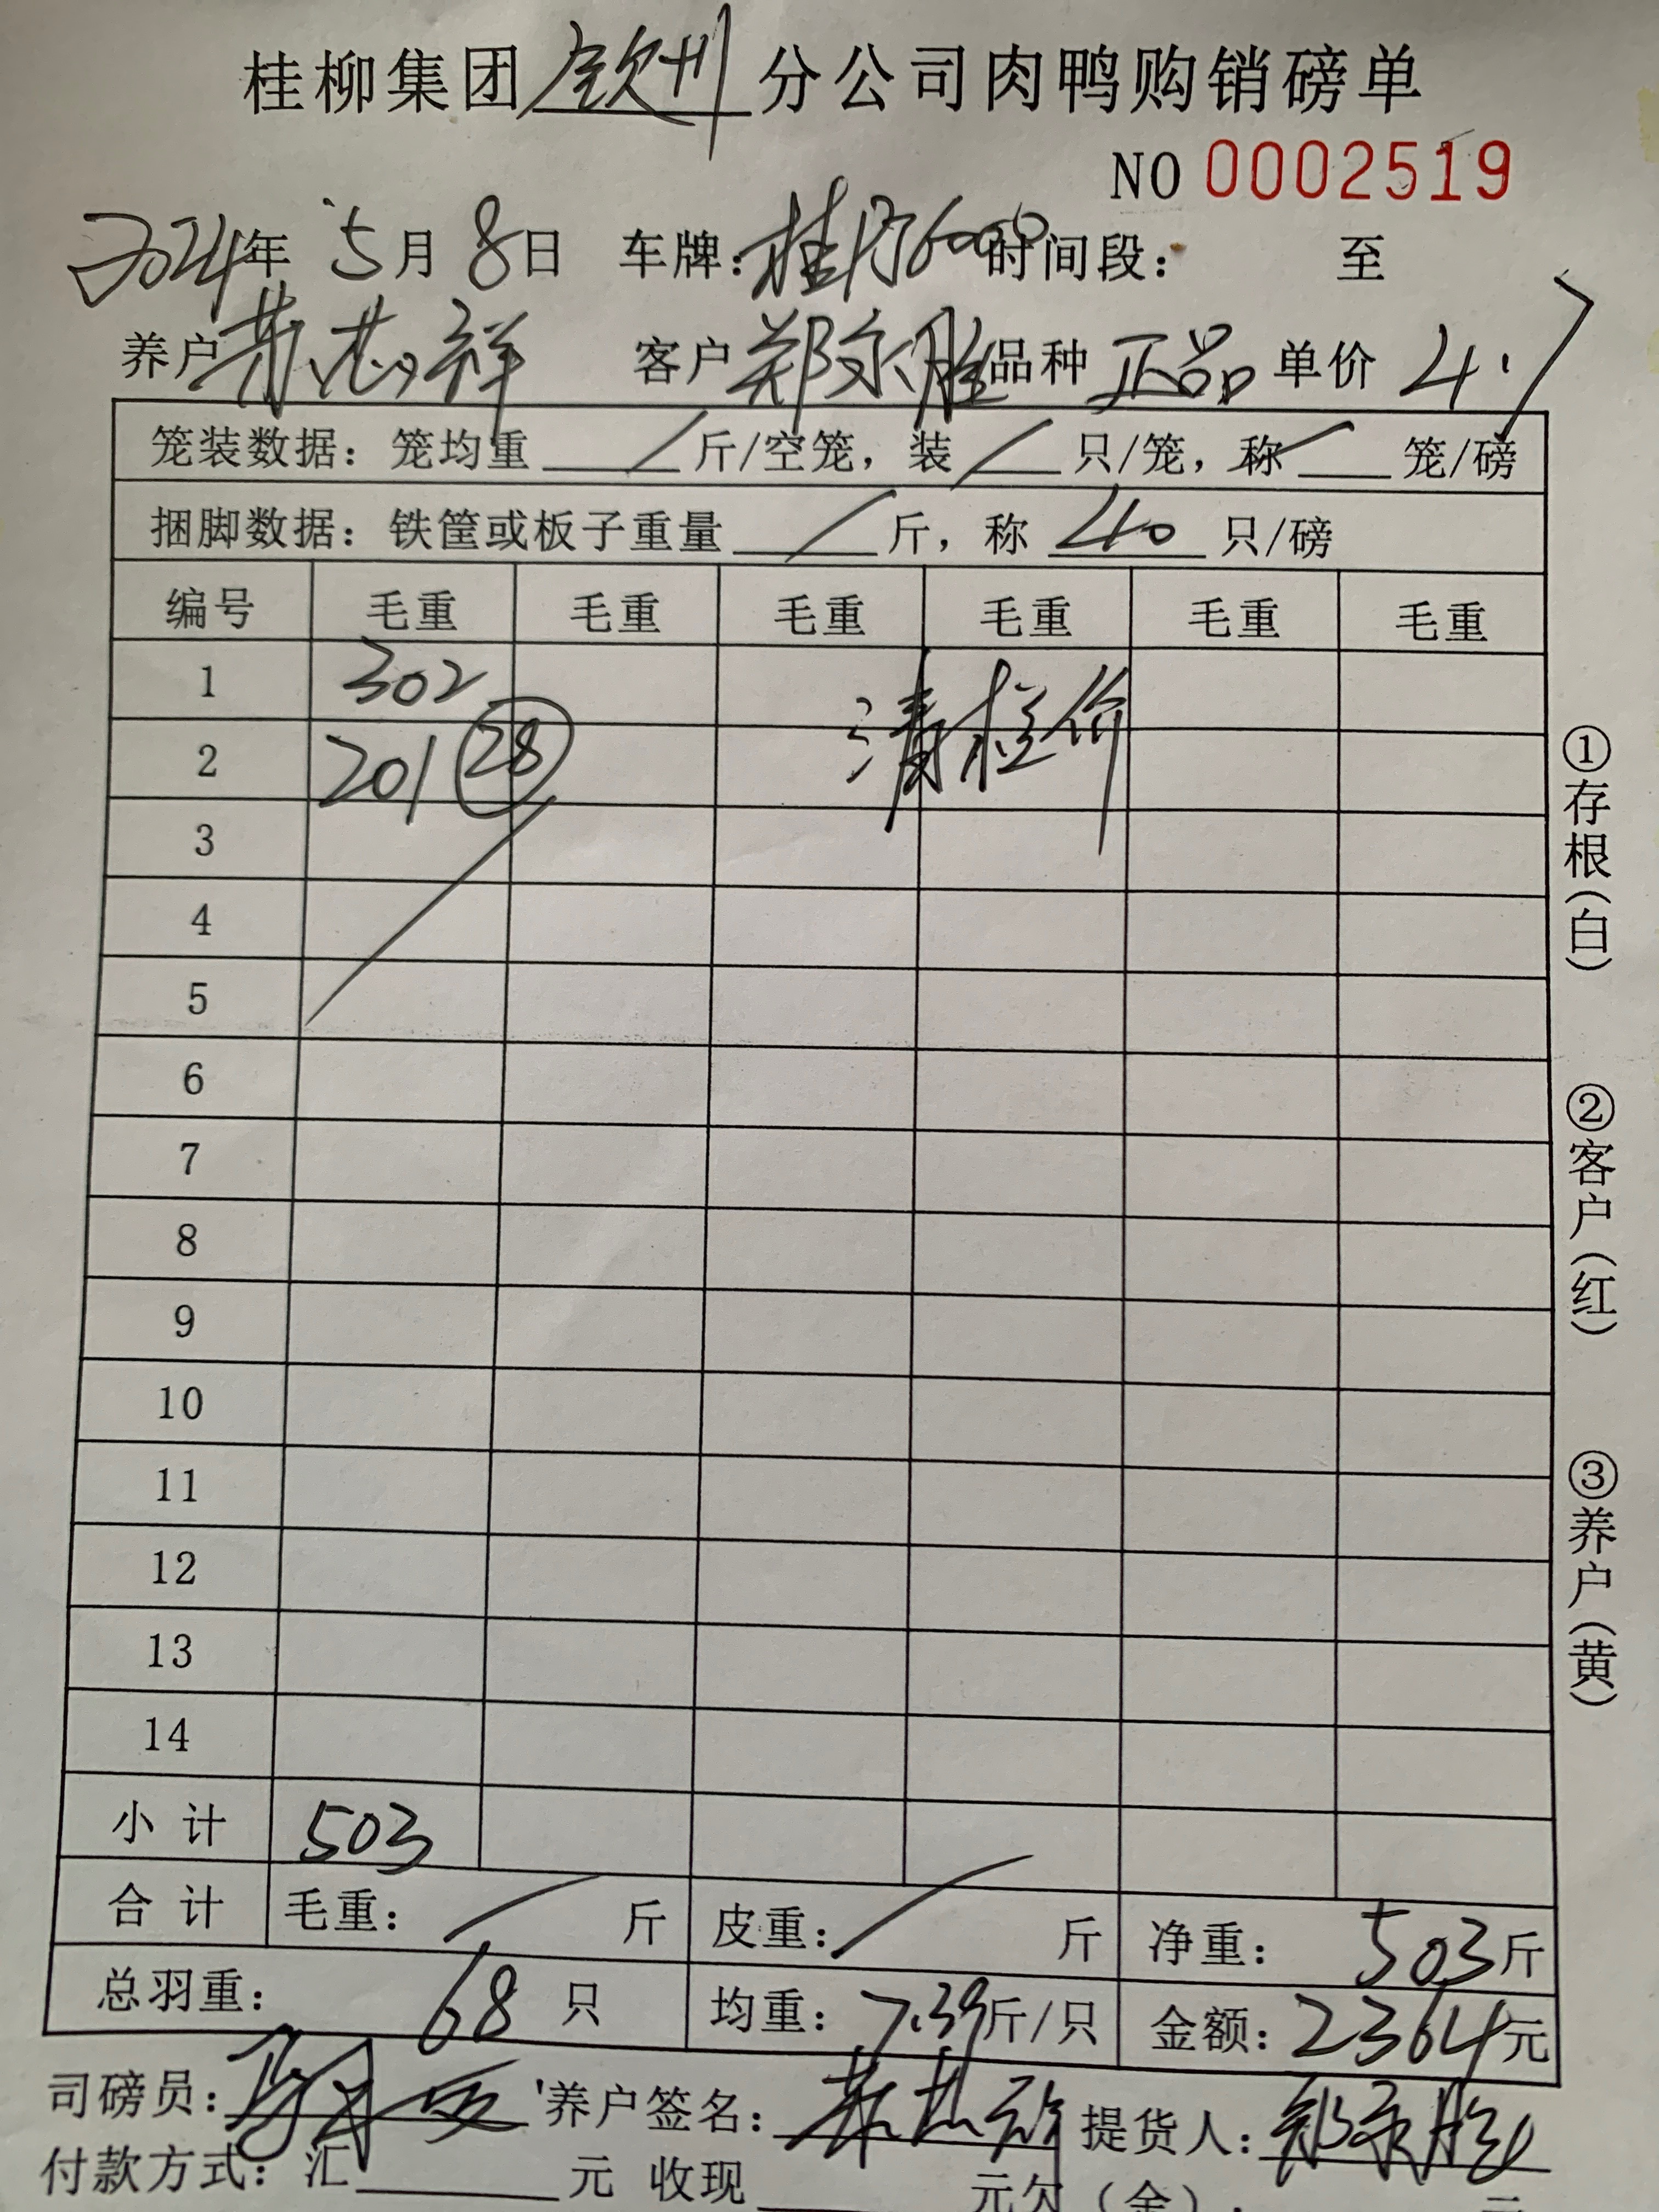 桂柳集团钦州分公司肉鸭购销磅单
NO 0002519
2024年5月8日 车牌:桂 时间段: 至
养户 祥 客户 郑永胜 品种 正品 单价 4.7
笼装数据: 笼均重 / 斤/空笼, 装 / 只/笼, 称 / 笼/磅
捆脚数据: 铁筐或板子重量 / 斤, 称 40 只/磅
编号 毛重 毛重 毛重 毛重 毛重 毛重
1 302
清栏价
2 201 28
3
4
5
6
7
8
9
10
11
12
13
14
小计 503
合计 毛重: / 斤 皮重: / 斤 净重: 503斤
总羽重: 68 只 均重: 7.39斤/只 金额: 2364元
司磅员: 养户签名: 提货人: 郑永胜
付款方式: 汇 元 收现 元欠(余):
①存根(白)
②客户(红)
③养户(黄)